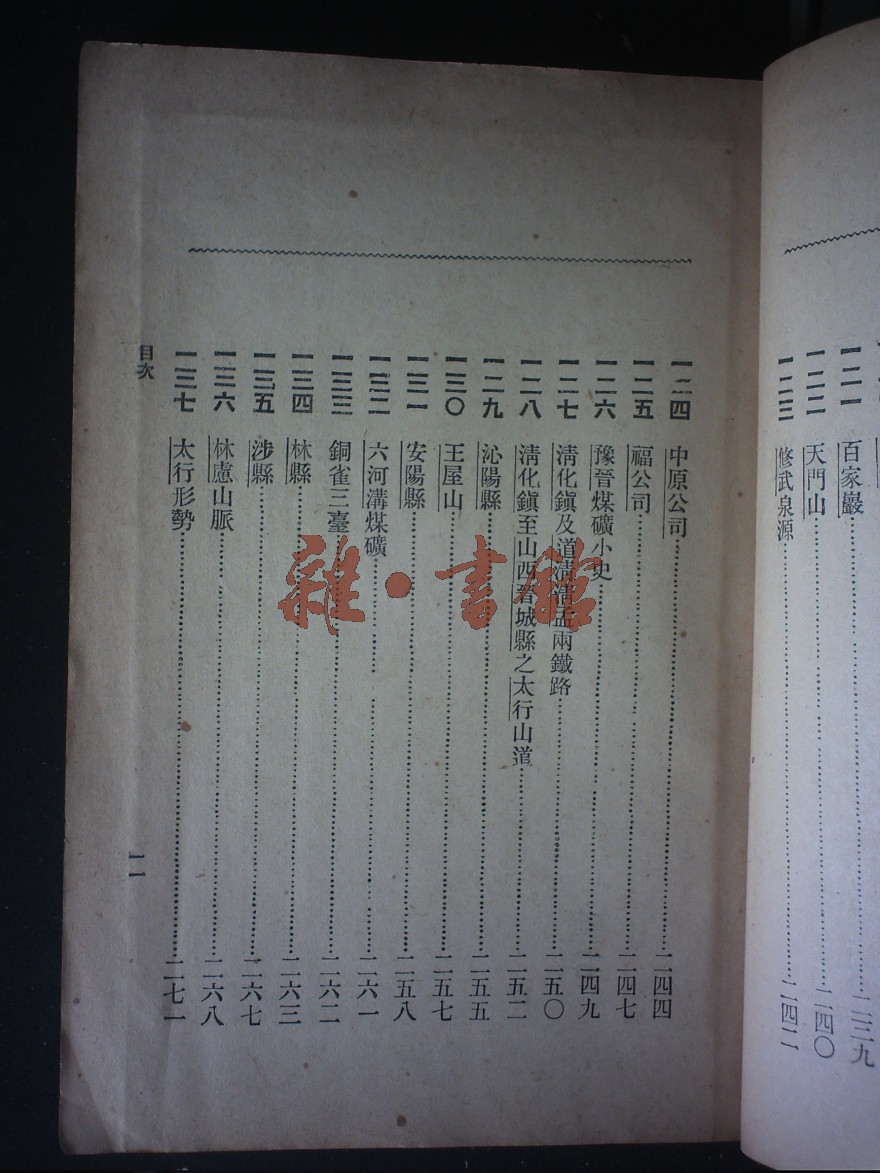 一二一 百家巖 二三九
一二二 天門山 二四〇
一二三 修武泉源 二四二
一二四 中原公司 二四四
一二五 福公司 二四七
一二六 豫晉煤礦小史 二四九
一二七 淸化鎭及道淸淸孟兩鐵路 二五〇
一二八 淸化鎭至山西晉城縣之太行山道 二五二
一二九 沁陽縣 二五五
一三〇 王屋山 二五七
一三一 安陽縣 二五八
一三二 六河溝煤礦 二六一
一三三 銅雀三臺 二六二
一三四 林縣 二六三
一三五 涉縣 二六七
一三六 林慮山脈 二六八
一三七 太行形勢 二七一
目次
一一
雜·書館